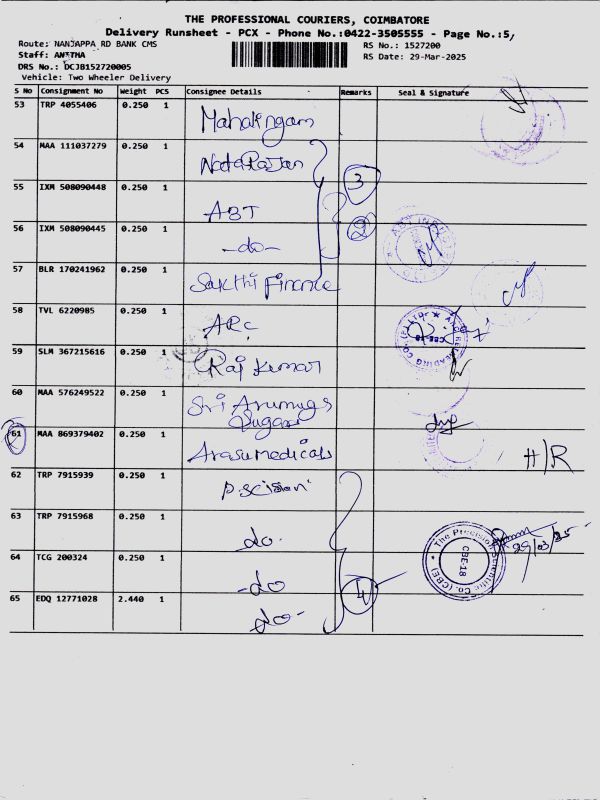 THE PROFESSIONAL COURIERS, COIMBATORE
Delivery Runsheet - PCX - Phone No.:0422-3505555 - Page No.:5/
Route: NANJAPPA RD BANK CMS
RS No.: 1527200
Staff: ANITHA
RS Date: 29-Mar-2025
DRS No.: DCJB152720005
Vehicle: Two Wheeler Delivery
S No Consignment No Weight PCS Consignee Details Remarks Seal & Signature
53 TRP 4055406 0.250 1 Mahalingam
54 MAA 111037279 0.250 1 NataRajan
3
55 IXM 508090448 0.250 1 ABT
2
56 IXM 508090445 0.250 1 -do-
57 BLR 170241962 0.250 1 Sakthi Finance
58 TVL 6220985 0.250 1 ARC
59 SLM 367215616 0.250 1 Raj Kumar
60 MAA 576249522 0.250 1 Sri Arumugs
Sugar
61 MAA 869379402 0.250 1 Arasu medicals H/R
62 TRP 7915939 0.250 1 P.scision
63 TRP 7915968 0.250 1 do.
The Precision Scientific Co. (CBE)
CBE-18
29/03/25
64 TCG 200324 0.250 1 -do
4
65 EDQ 12771028 2.440 1 do-